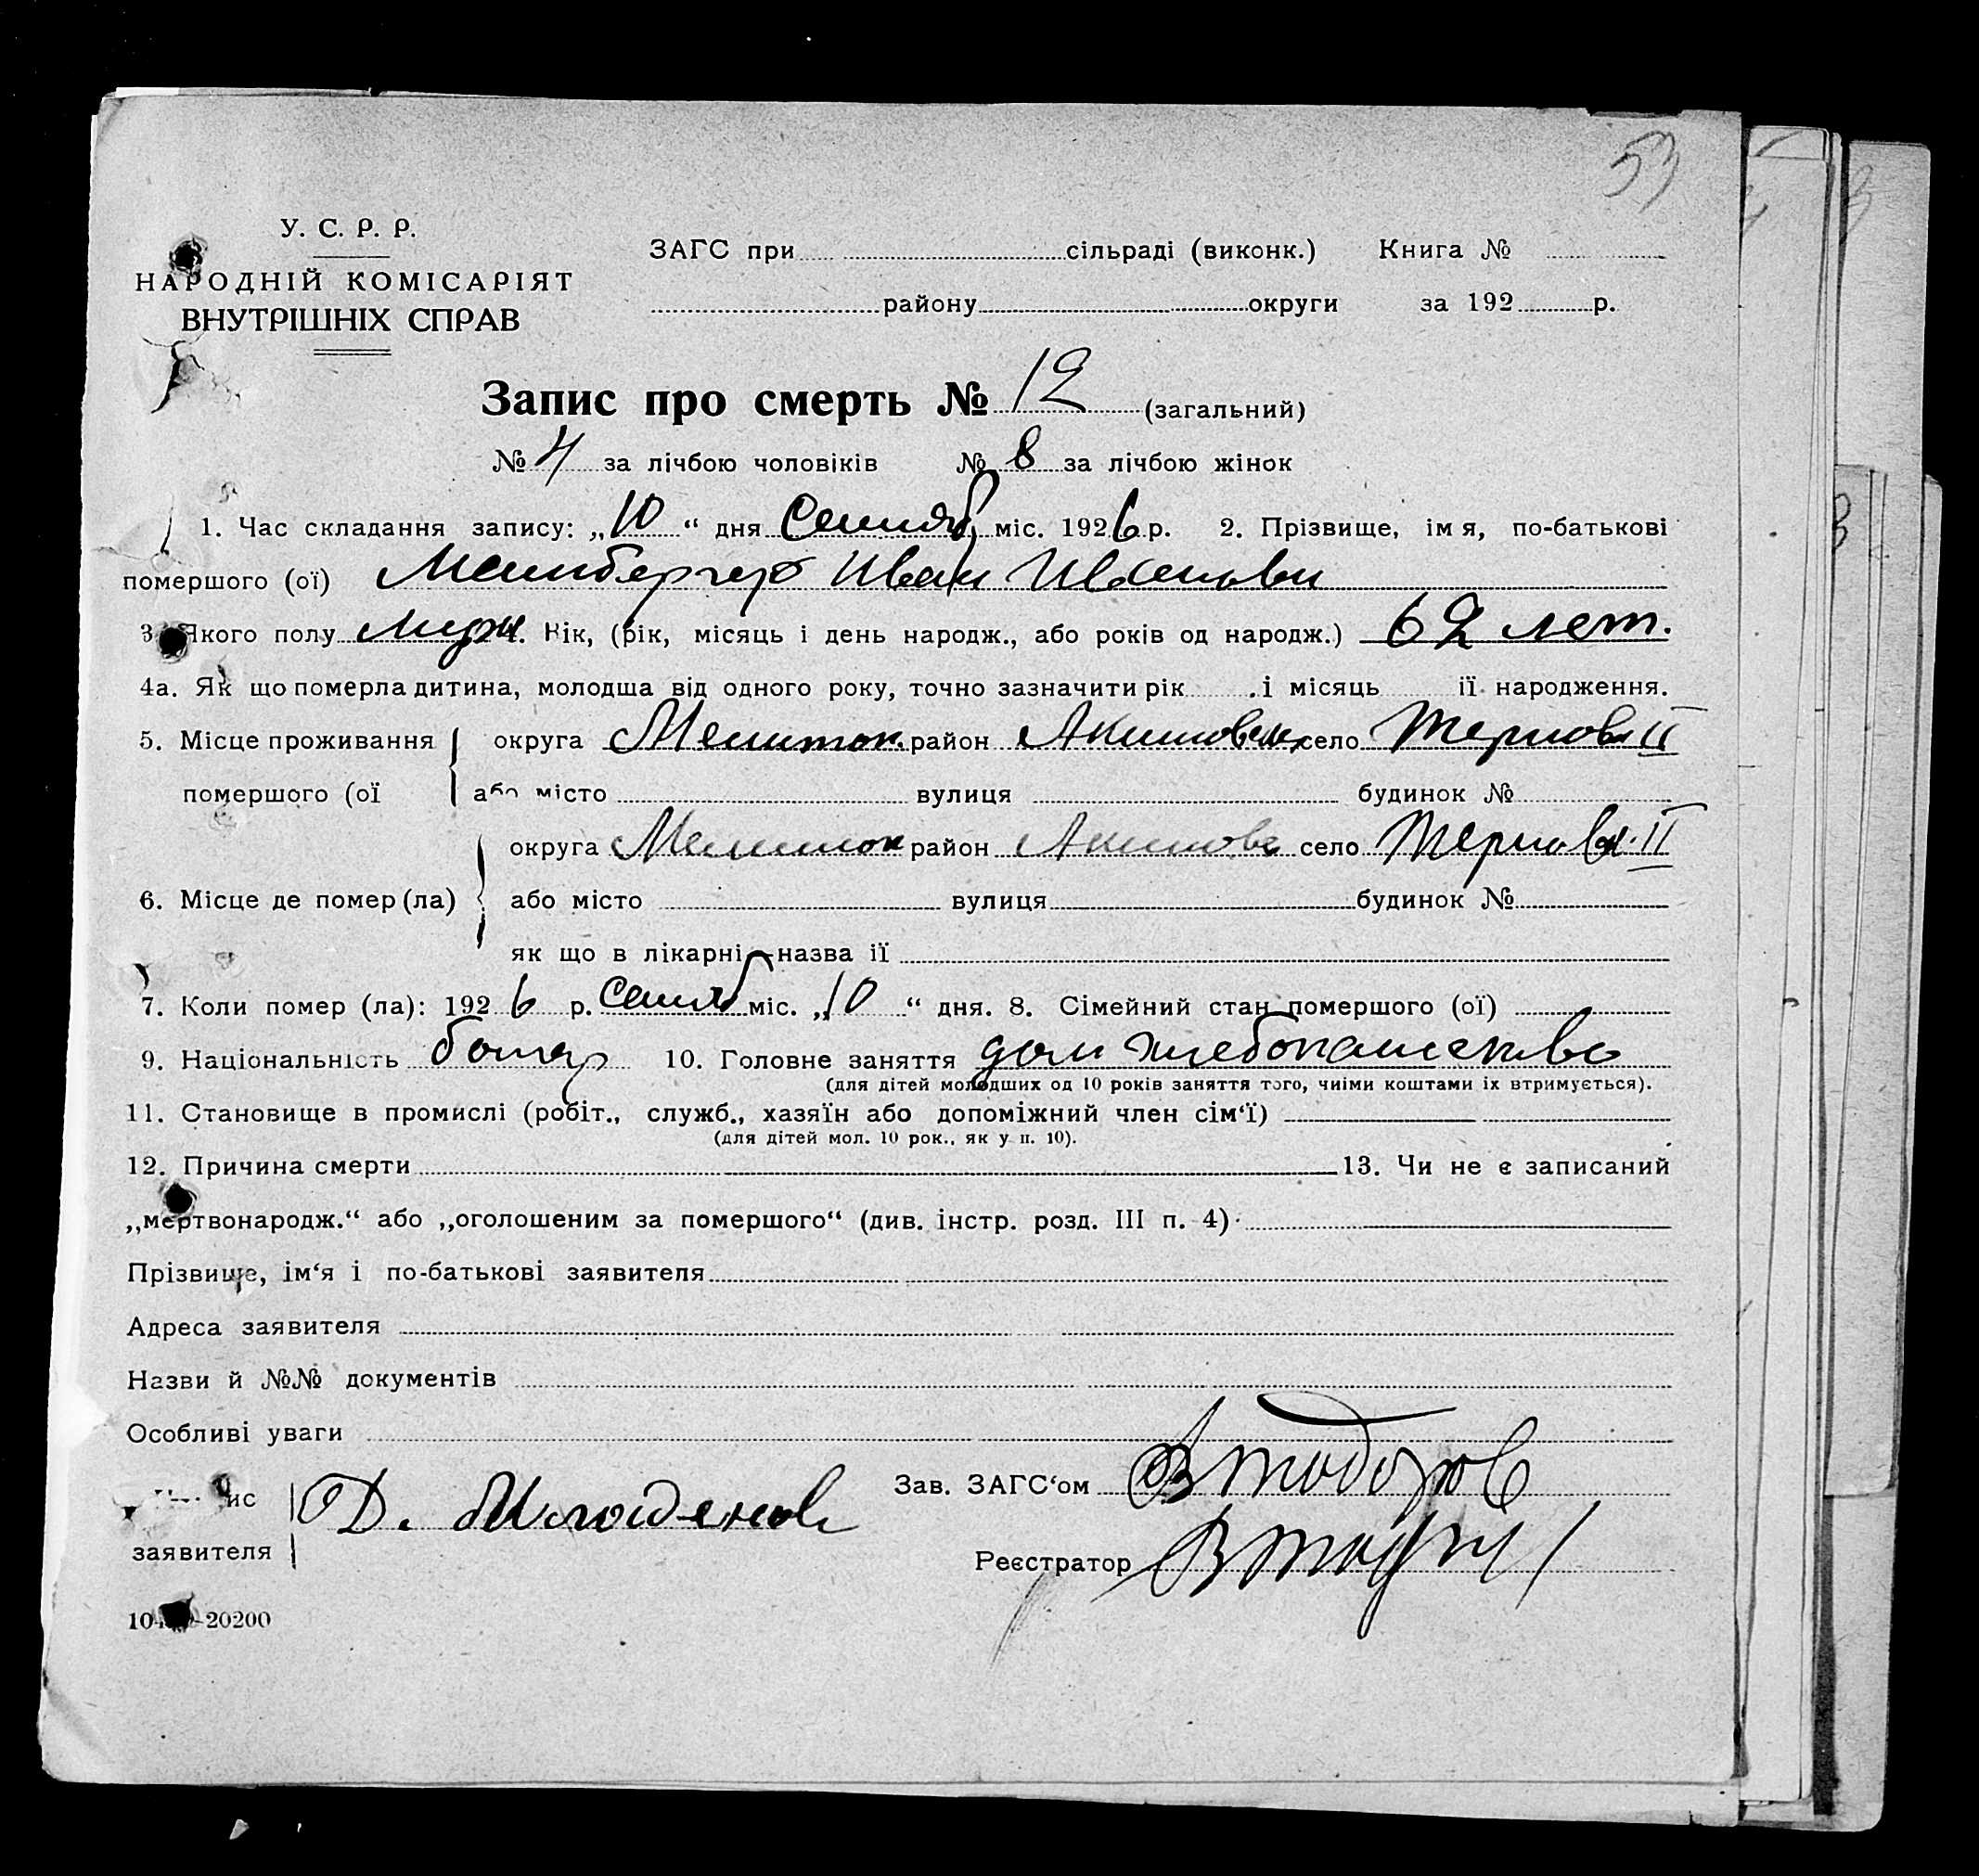 53
У. С. Р. Р.
НАРОДНІЙ КОМІСАРІЯТ
ВНУТРІШНІХ СПРАВ
ЗАГС при сільраді (виконк.) Книга №
району округи за 192 р.
Запис про смерть № 12 (загальний)
№ 4 за лічбою чоловіків № 8 за лічбою жінок
1. Час складання запису: „10“ дня Сентяб міс. 1926 р. 2. Прізвище, імя, по-батькові
помершого (ої) Иван
3. Якого полу муж. Вік, (рік, місяць і день народж., або років од народж.) 62 лет.
4а. Як що померла дитина, молодша від одного року, точно зазначити рік і місяць її народження.
5. Місце проживання округа Мелитоп. район Акимовск село Терновк II
помершого (ої або місто вулиця будинок №
округа Мелитоп район Акимовс село Терновк. II
6. Місце де помер (ла) або місто вулиця будинок №
як що в лікарні—назва її
7. Коли помер (ла): 1926 р. Сентяб міс. „10“ дня. 8. Сімейний стан помершого (ої)
9. Національність болгар 10. Головне заняття дом хлебопашество
(для дітей молодших од 10 років заняття того, чиїми коштами їх втримується).
11. Становище в промислі (робіт., служб., хазяїн або допоміжний член сім‘ї)
(для дітей мол. 10 рок., як у п. 10).
12. Причина смерти 13. Чи не є записаний
„мертвонародж.“ або „оголошеним за помершого“ (див. інстр. розд. III п. 4)
Прізвище, ім‘я і по-батькові заявителя
Адреса заявителя
Назви й №№ документів
Особливі уваги
ис Д. Зав. ЗАГС‘ом
заявителя Реєстратор
20200